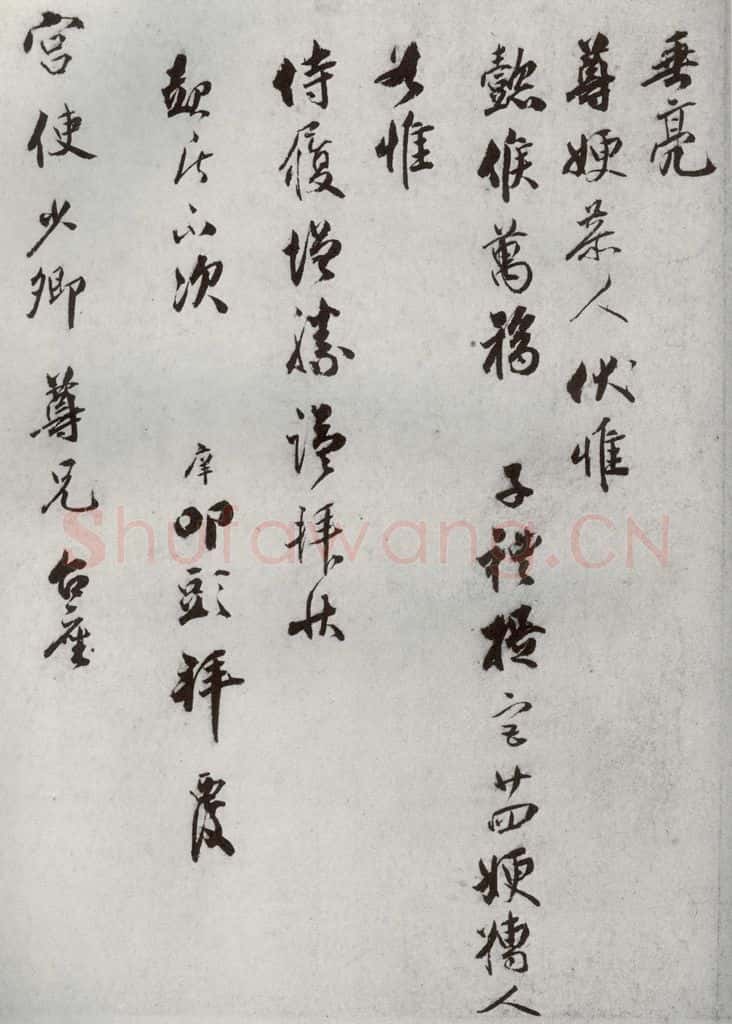 垂亮
尊嫂恭人伏惟
懿候萬福 子禮提 宅廿四嫂孺人
共惟
侍履增勝謹拜狀
起居不次 庠叩頭拜覆
宮使少卿尊兄台座
Shufawang.CN